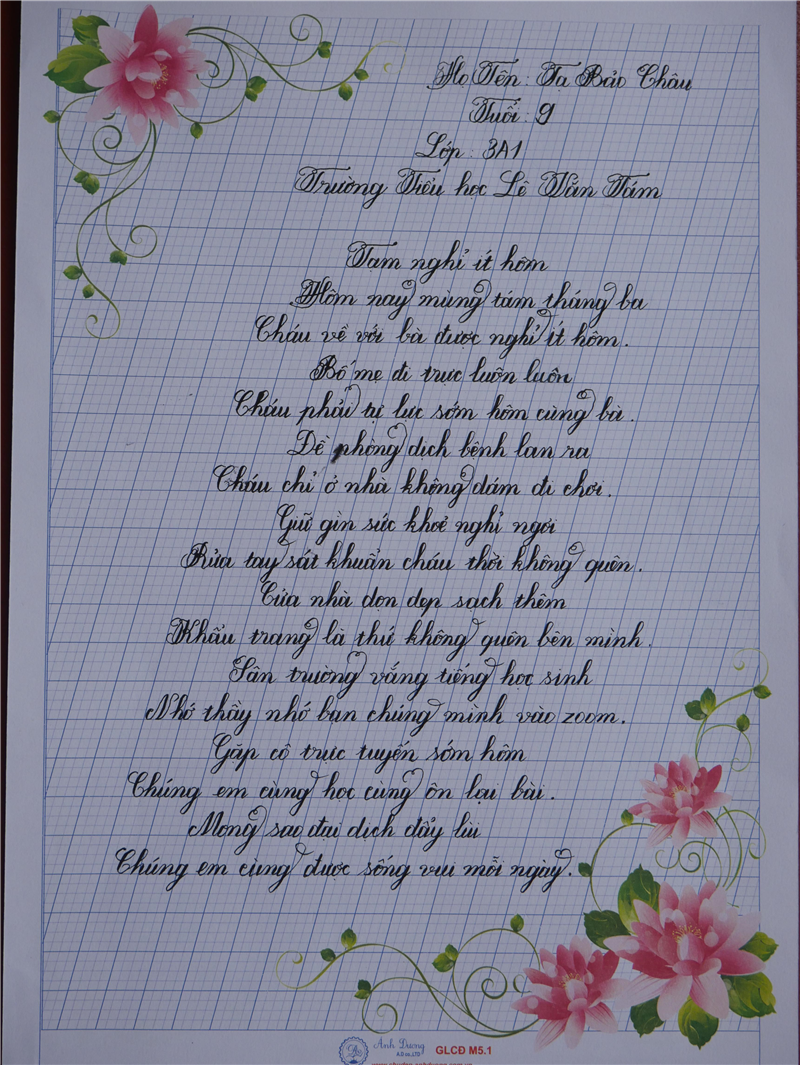 Họ Tên : Tạ Bảo Châu
Tuổi : 9
Lớp : 3A1
Trường Tiểu học Lê Văn Tám
Tạm nghỉ ít hôm
Hôm nay mùng tám tháng ba
Cháu về với bà được nghỉ ít hôm.
Bố mẹ đi trực luôn luôn
Cháu phải tự lực sớm hôm cùng bà.
Đề phòng dịch bệnh lan ra
Cháu chỉ ở nhà không dám đi chơi.
Giữ gìn sức khoẻ nghỉ ngơi
Rửa tay sát khuẩn cháu thời không quên.
Cửa nhà dọn dẹp sạch thêm
Khẩu trang là thứ không quên bên mình.
Sân trường vắng tiếng học sinh
Nhớ thầy nhớ bạn chúng mình vào zoom.
Gặp cô trực tuyến sớm hôm
Chúng em cùng học cùng ôn lại bài.
Mong sao đại dịch đẩy lùi
Chúng em cùng được sống vui mỗi ngày.
Ánh Dương
A.D co.,LTD
GLCĐ M5.1